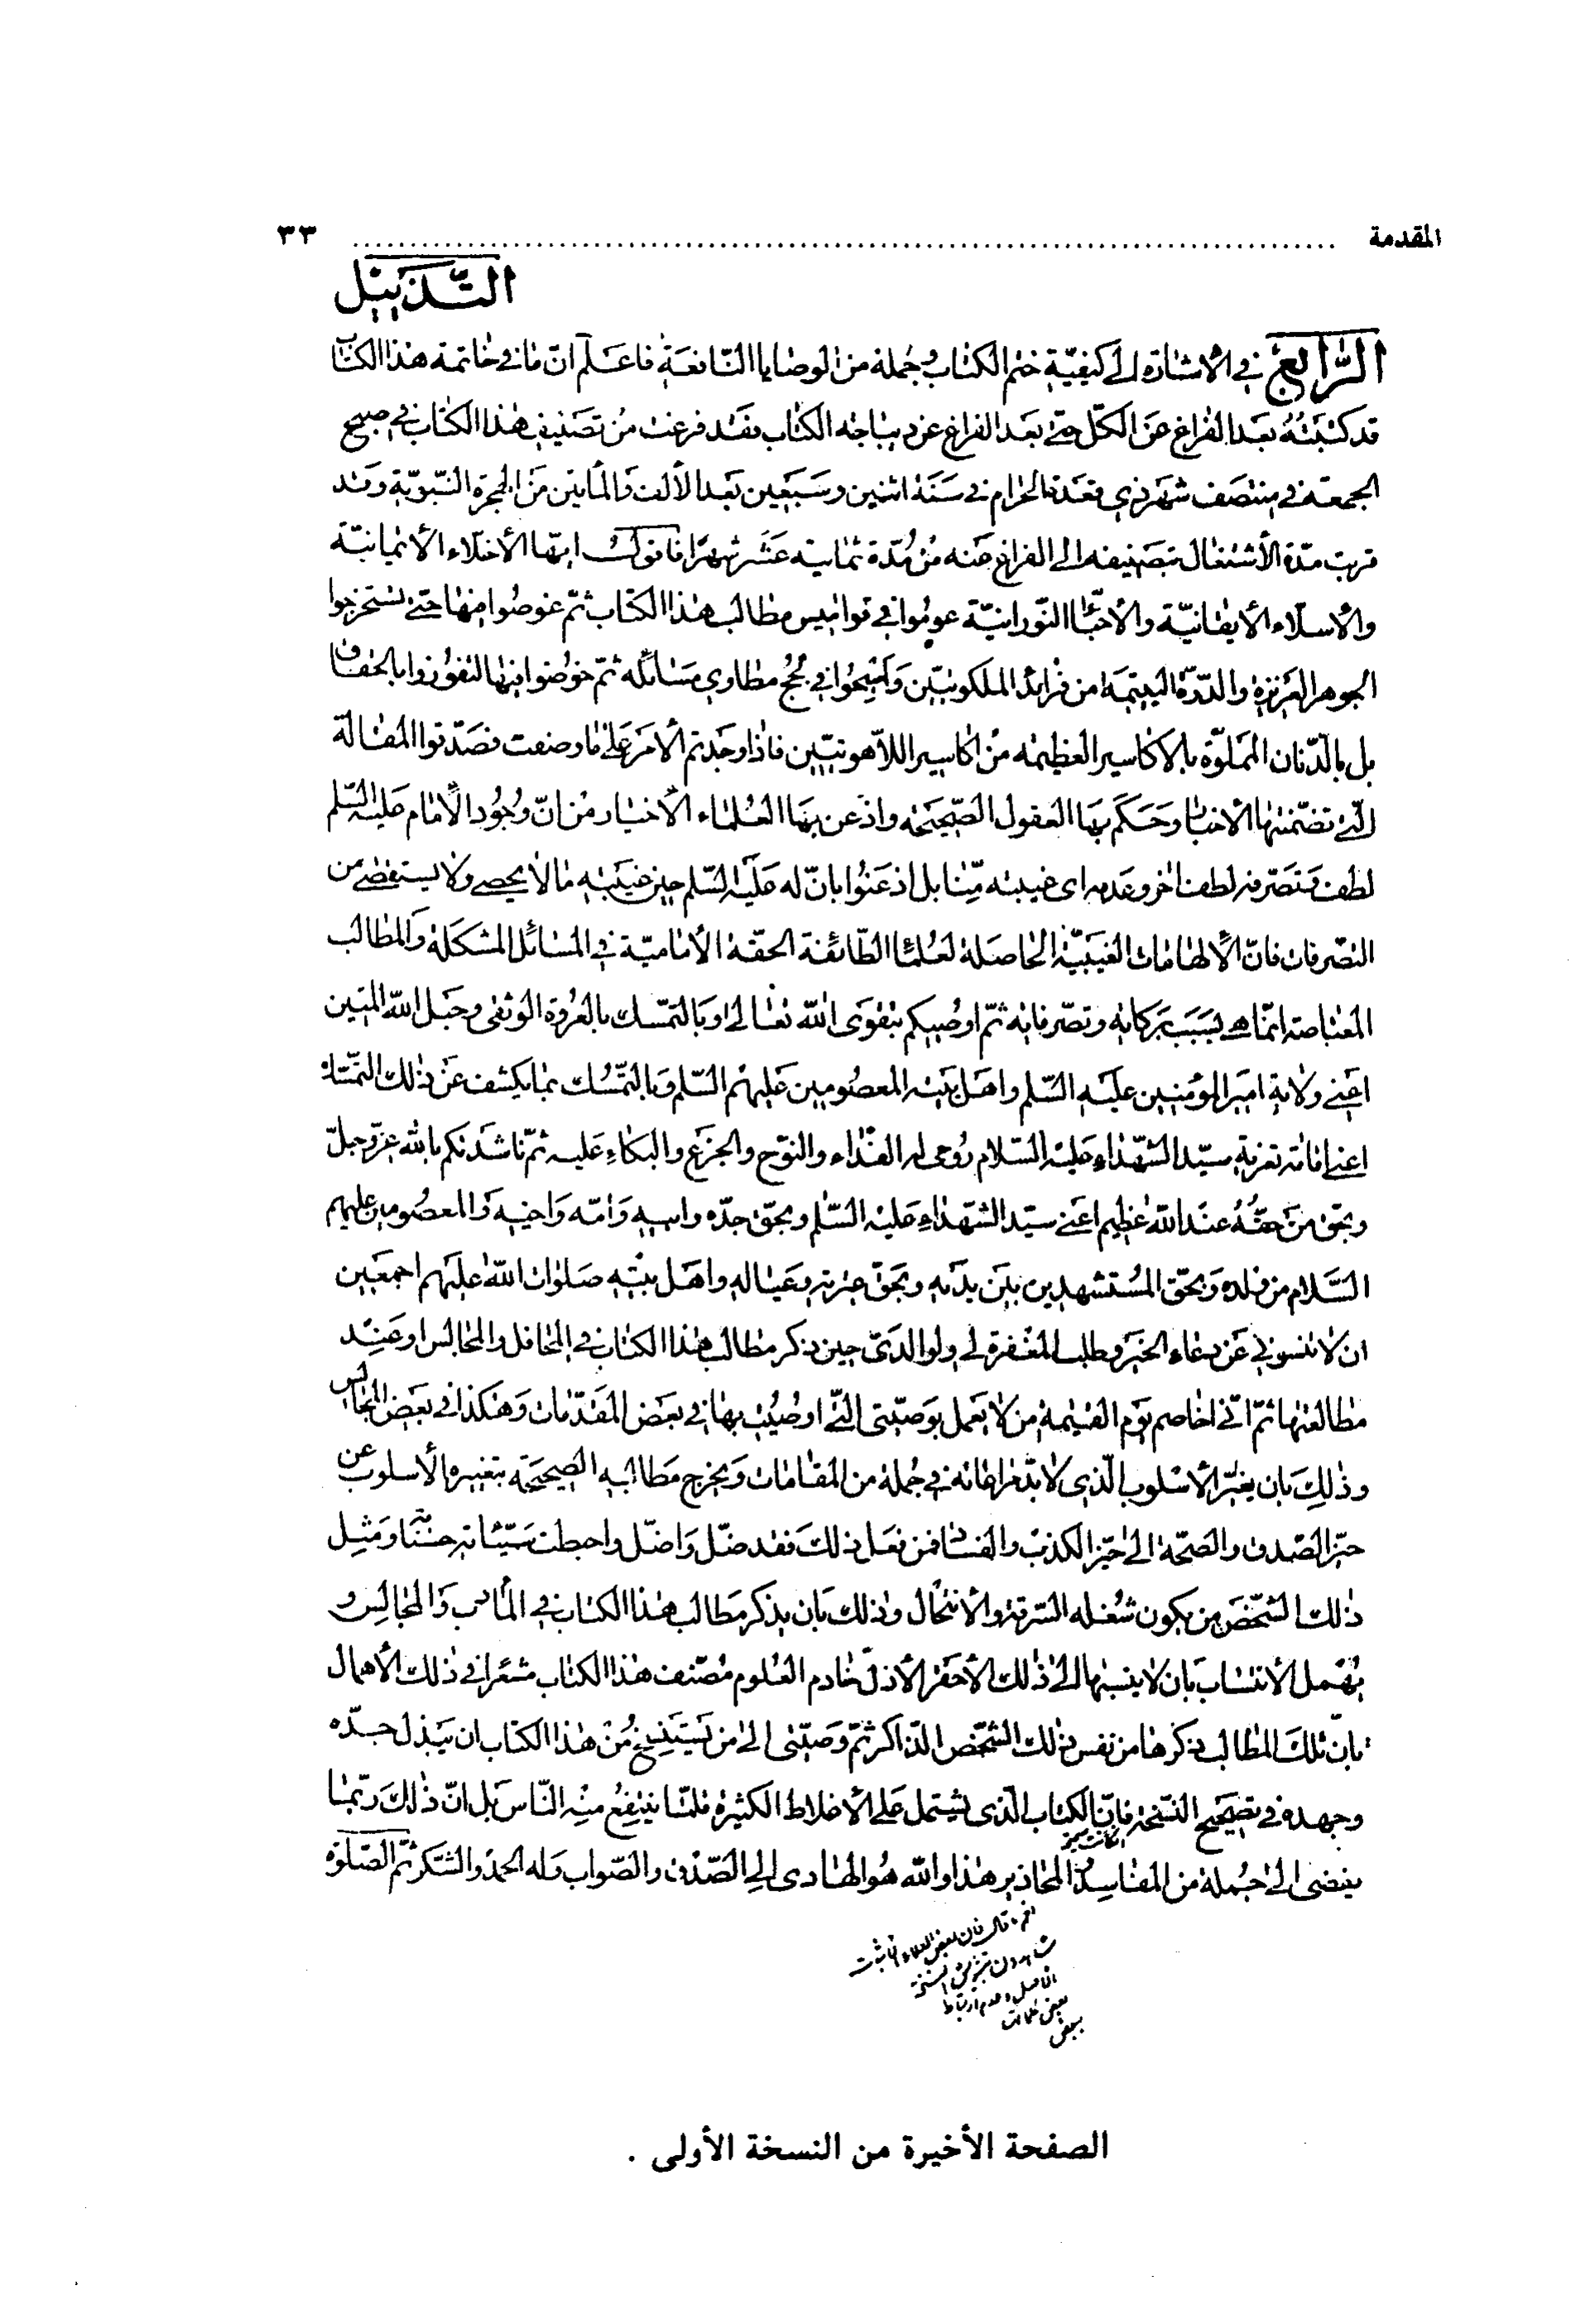 المقدمة ........ ٣٣
التذييل
الرابع في الأشارة إلى كيفية ختم الكتاب وجملة من الوصايا النافعة فاعلم ان ما في خاتمة هذا الكتاب
قد كتبته بعد الفراغ عن الكل حتى بعد الفراغ عن ديباجه الكتاب فقد فرغت من تصنيف هذا الكتاب في صبيح
الجمعة في منتصف شهر ذي قعدة الحرام في سنة اثنين وسبعين بعد الألف والمأتين من الهجرة النبوية وقد
قربت مدة الأشتغال بتصنيفه الى الفراغ عنه من مدة ثمانية عشر شهرا فاقول ايها الأخلاء الأيمانية
والأسلاء الأيقانية والأحباء النورانية عوموا في قواميس مطالب هذا الكتاب ثم غوصوا فيها حتى تستخرجوا
الجوهر العزيزة والدرة اليتيمة من فرائد الملكوتيين وسيحوا في لجج مطاوي مسائله ثم خوضوا فيها لتفوزوا بالحقاق
بل بالدنان المملوة بالاكاسير العظيمة من اكاسير اللاهوتيين فاذا وجدتم الأمر على ما وصفت فصدقوا المقالة
التي تضمنتها الأخبار وحكم بها العقول الصحيحة واذعن بها العلماء الأخيار من ان وجود الأمام عليه السلم
لطف وتصرفه لطف اخر وعدمه اى غيبته منا بل اذعنوا بان له عليه السلم حين غيبته ما لا يحصى ولا يستقصى من
التصرفات فان الألهامات الغيبية الحاصلة لعلماء الطائفة الحقة الأمامية في المسائل المشكلة والمطالب
المعتاصة انما هي بسبب بركاته وتصرفاته ثم اوصيكم بتقوى الله تعالى او بالتمسك بالعروة الوثقى وحبل الله المتين
اعنى ولاية امير المؤمنين عليه السلم واهل بيته المعصومين عليهم السلم وبالتمسك بما يكشف عن ذلك التمسك
اعنى اقامة تعزية سيد الشهداء عليه السلام روحى له الفداء والنوح والجزع والبكاء عليه ثم ناشدتكم بالله عز وجل
وبحق من حقه عند الله عظيم اعنى سيد الشهداء عليه السلم وبحق جده وابيه وامه واخيه والمعصومين عليهم
السلام من ولده وبحق المستشهدين بين يديه وبحق عترته وعياله واهل بيته صلوات الله عليهم اجمعين
ان لا تنسوني عن دعاء الخير وطلب المغفرة لى ولوالدى حين ذكر مطالب هذا الكتاب في المحافل والمجالس او عند
مطالعتها ثم انى اخاصم يوم القيمة من لا يعمل بوصيتى التى اوصيت بها في بعض المقدمات وهكذا في بعض المجالس
وذلك بان يغير الأسلوب الذى لا بد مراعاته في جملة من المقامات ويخرج مطالبه الصحيحة بتغييره الأسلوب عن
حيز الصدق والصحة الى حيز الكذب والفساد فمن فعل ذلك فقد ضل واضل واحبطت سيئاته حسناته ومثل
ذلك الشخص من يكون شغله السرقة والأنتحال وذلك بان يذكر مطالب هذا الكتاب في المأدب والمجالس و
يهمل الأنتساب بان لا ينسبها الى ذلك الأحقر الأذل خادم العلوم مصنف هذا الكتاب مشعرا في ذلك الأهمال
بان تلك المطالب ذكرها من نفس ذلك الشخص الذاكر ثم وصيتى الى من يستنسخ من هذا الكتاب ان يبذل جده
وجهده في تصحيح النسخة فان الكتاب الذى يشتمل على الأغلاط الكثيرة قلما ينتفع منه الناس بل ان ذلك ربما
يفضى الى جملة من المفاسد والمحاذير هذا والله هو الهادى الى الصدق والصواب وله الحمد والشكر ثم الصلوة
الصفحة الأخيرة من النسخة الأولى .